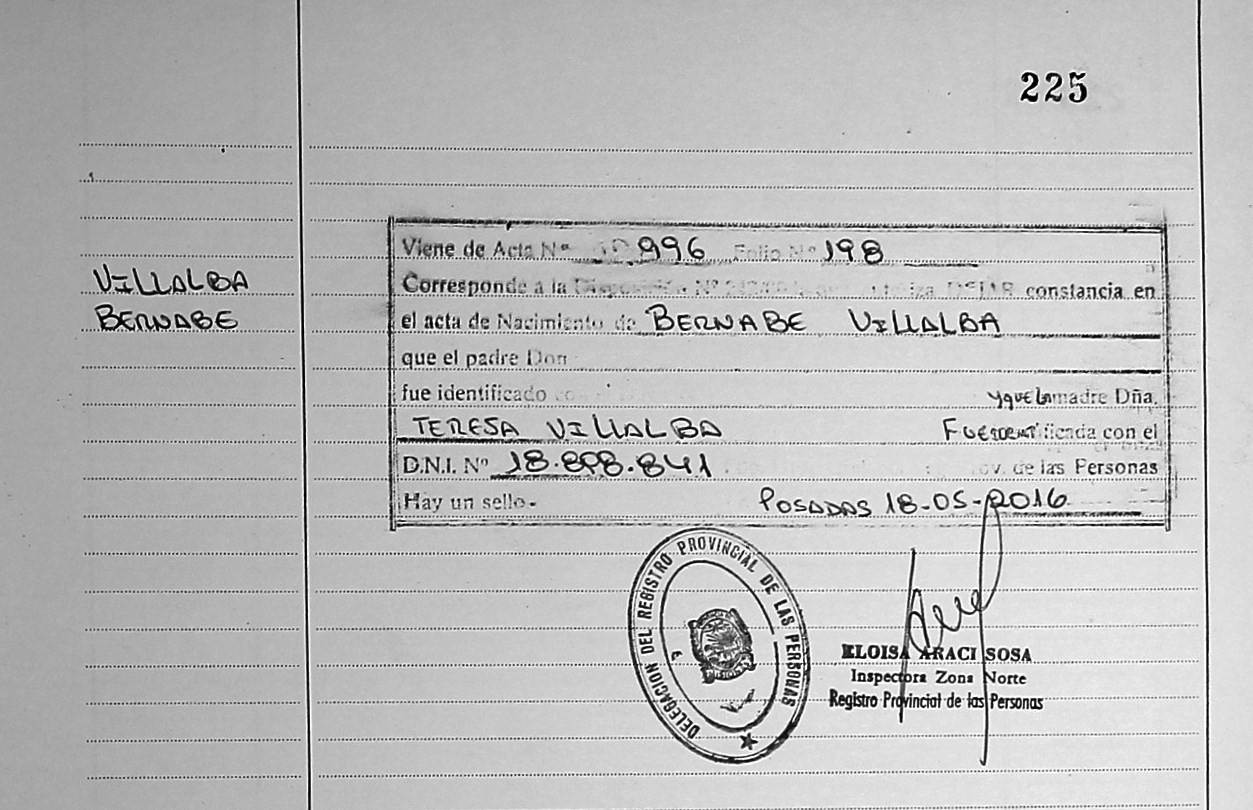 225
VILLALBA
BERNABE
Viene de Acta Nº 996 Folio Nº 198
Corresponde a la Disposición Nº DEJAR constancia en
el acta de Nacimiento de BERNABE VILLALBA
que el padre Don
fue identificado y que la madre Dña.
TERESA VILLALBA FUE IDENTificada con el
D.N.I. Nº 18.898.841 de las Personas
Hay un sello- POSADAS 18-05-2016
DELEGACION DEL REGISTRO PROVINCIAL DE LAS PERSONAS
ELOISA ARACI SOSA
Inspectora Zona Norte
Registro Provincial de las Personas